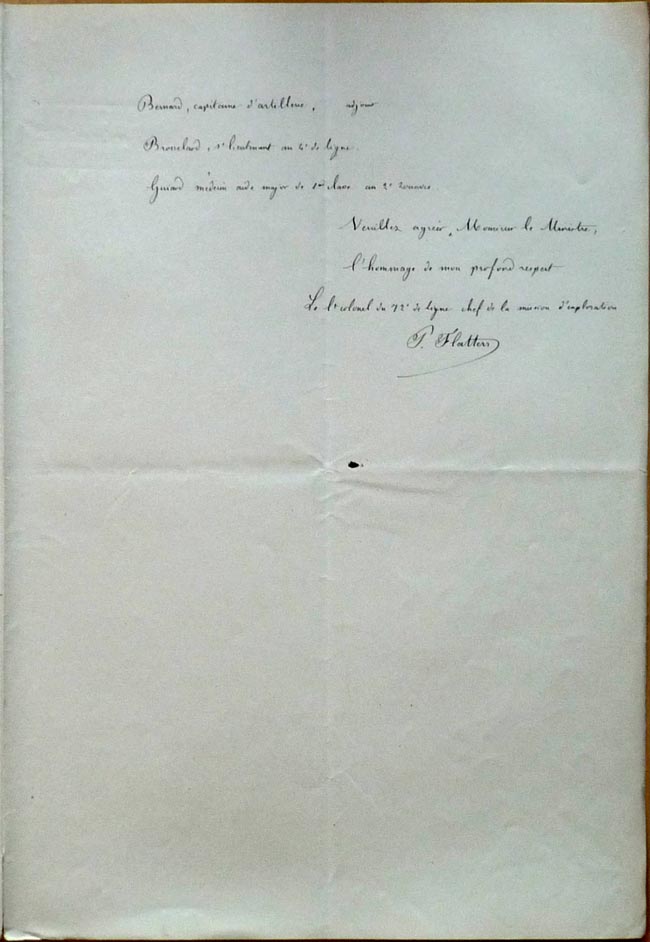 Bernard, capitaine d'artillerie, adjoint
Brosselard, s/ lieutenant au 4e de ligne.
Guiard médecin aide major de 1ère classe au 2e zouaves.
Veuillez agréer, Monsieur le Ministre,
l'hommage de mon profond respect
Le lt colonel du 72e de ligne chef de la mission d'exploration
P. Flatters